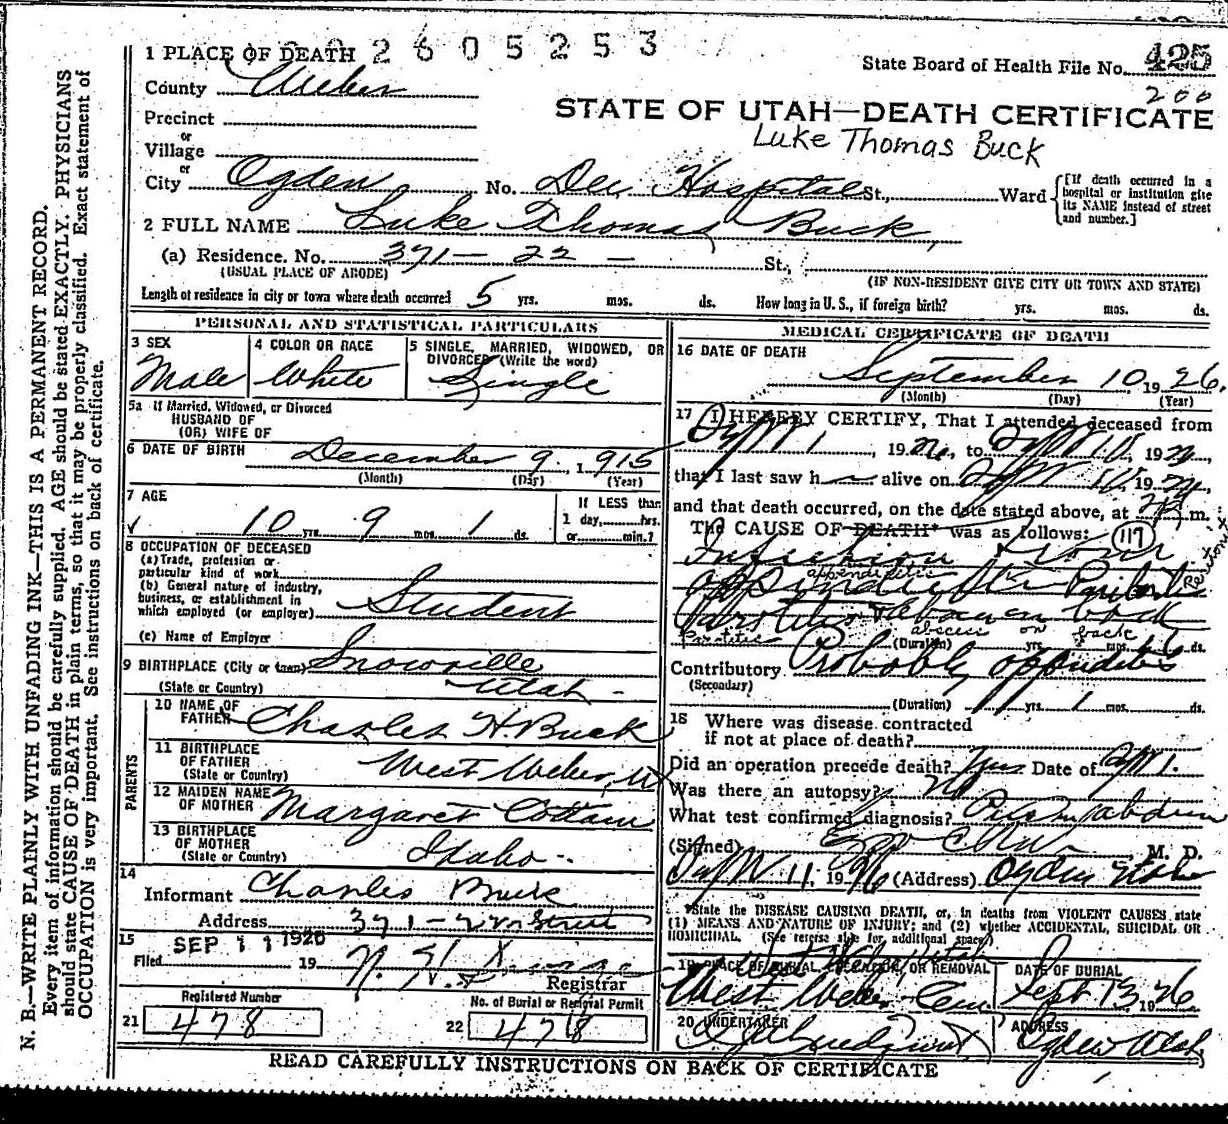 2605253
1 PLACE OF DEATH
State Board of Health File No. 425
200
County Weber
STATE OF UTAH—DEATH CERTIFICATE
Luke Thomas Buck
Precinct
or
Village
or
City Ogden No. Dee Hospital St., Ward
[If death occurred in a hospital or institution give its NAME instead of street and number.]
2 FULL NAME Luke Thomas Buck
(a) Residence. No. 371 - 22 - St.,
(USUAL PLACE OF ABODE) (IF NON-RESIDENT GIVE CITY OR TOWN AND STATE)
Length of residence in city or town where death occurred 5 yrs. mos. ds. How long in U. S., if foreign birth? yrs. mos. ds.
PERSONAL AND STATISTICAL PARTICULARS
3 SEX Male
4 COLOR OR RACE White
5 SINGLE, MARRIED, WIDOWED, OR DIVORCED (Write the word) Single
5a If Married, Widowed, or Divorced
HUSBAND OF
(OR) WIFE OF
6 DATE OF BIRTH December 9, 1915
(Month) (Day) (Year)
7 AGE
10 yrs. 9 mos. 1 ds.
If LESS than 1 day, hrs. or min.?
8 OCCUPATION OF DECEASED
(a) Trade, profession or particular kind of work
(b) General nature of industry, business, or establishment in which employed (or employer) Student
(c) Name of Employer
9 BIRTHPLACE (City or town) Snowville
(State or Country) Utah
PARENTS
10 NAME OF FATHER Charles H. Buck
11 BIRTHPLACE OF FATHER (State or Country) West Weber, Ut
12 MAIDEN NAME OF MOTHER Margaret Cottam
13 BIRTHPLACE OF MOTHER (State or Country) Idaho
14
Informant Charles Buck
Address 371 - 22n Street
15 SEP 11 1926
Filed 19
Registrar
Registered Number
21 478
No. of Burial or Removal Permit
22 478
MEDICAL CERTIFICATE OF DEATH
16 DATE OF DEATH
September 10, 1926.
(Month) (Day) (Year)
17 I HEREBY CERTIFY, That I attended deceased from
Sept 1, 1926, to Sept 10, 1926
that I last saw h alive on Sept 10, 1926
and that death occurred, on the date stated above, at m.
The CAUSE OF DEATH* was as follows: 117
Infection from
appendicitis
Peritonitis
Parotitis abscess on back
Parotitis (Duration) abscess on back yrs. mos. ds.
Contributory Probably appendicitis
(Secondary)
(Duration) yrs. 1 mos. ds.
18 Where was disease contracted
if not at place of death?
Did an operation precede death? Yes Date of Sept 1.
Was there an autopsy? No
What test confirmed diagnosis? Pus in abdomen
(Signed) M. D.
Sept 11, 1926 (Address) Ogden Utah
*State the DISEASE CAUSING DEATH, or, in deaths from VIOLENT CAUSES, state
(1) MEANS AND NATURE OF INJURY; and (2) whether ACCIDENTAL, SUICIDAL OR
HOMICIDAL. (See reverse side for additional space)
19 PLACE OF BURIAL, CREMATION, OR REMOVAL
West Weber Utah
West Weber Cem
DATE OF BURIAL
Sept 13, 1926
20 UNDERTAKER
ADDRESS
Ogden Utah
READ CAREFULLY INSTRUCTIONS ON BACK OF CERTIFICATE
N. B.—WRITE PLAINLY WITH UNFADING INK—THIS IS A PERMANENT RECORD.
Every item of information should be carefully supplied. AGE should be stated EXACTLY. PHYSICIANS
should state CAUSE OF DEATH in plain terms, so that it may be properly classified. Exact statement of
OCCUPATION is very important. See instructions on back of certificate.